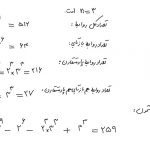 let n=3
تعداد کل روابط: = ۵۱۲
تعداد روابط بازتابی: = ۶۴
= ۲^۳ × ۳^۳ = ۲۱۶ تعداد روابط پادتقارن:
= ۳^۳ = ۲۷ تعداد روابط هم بازتابی هم پادتقارن:
- ۲^۶ - ۲^۳ × ۳^۳ + ۳^۳ = ۲۵۹